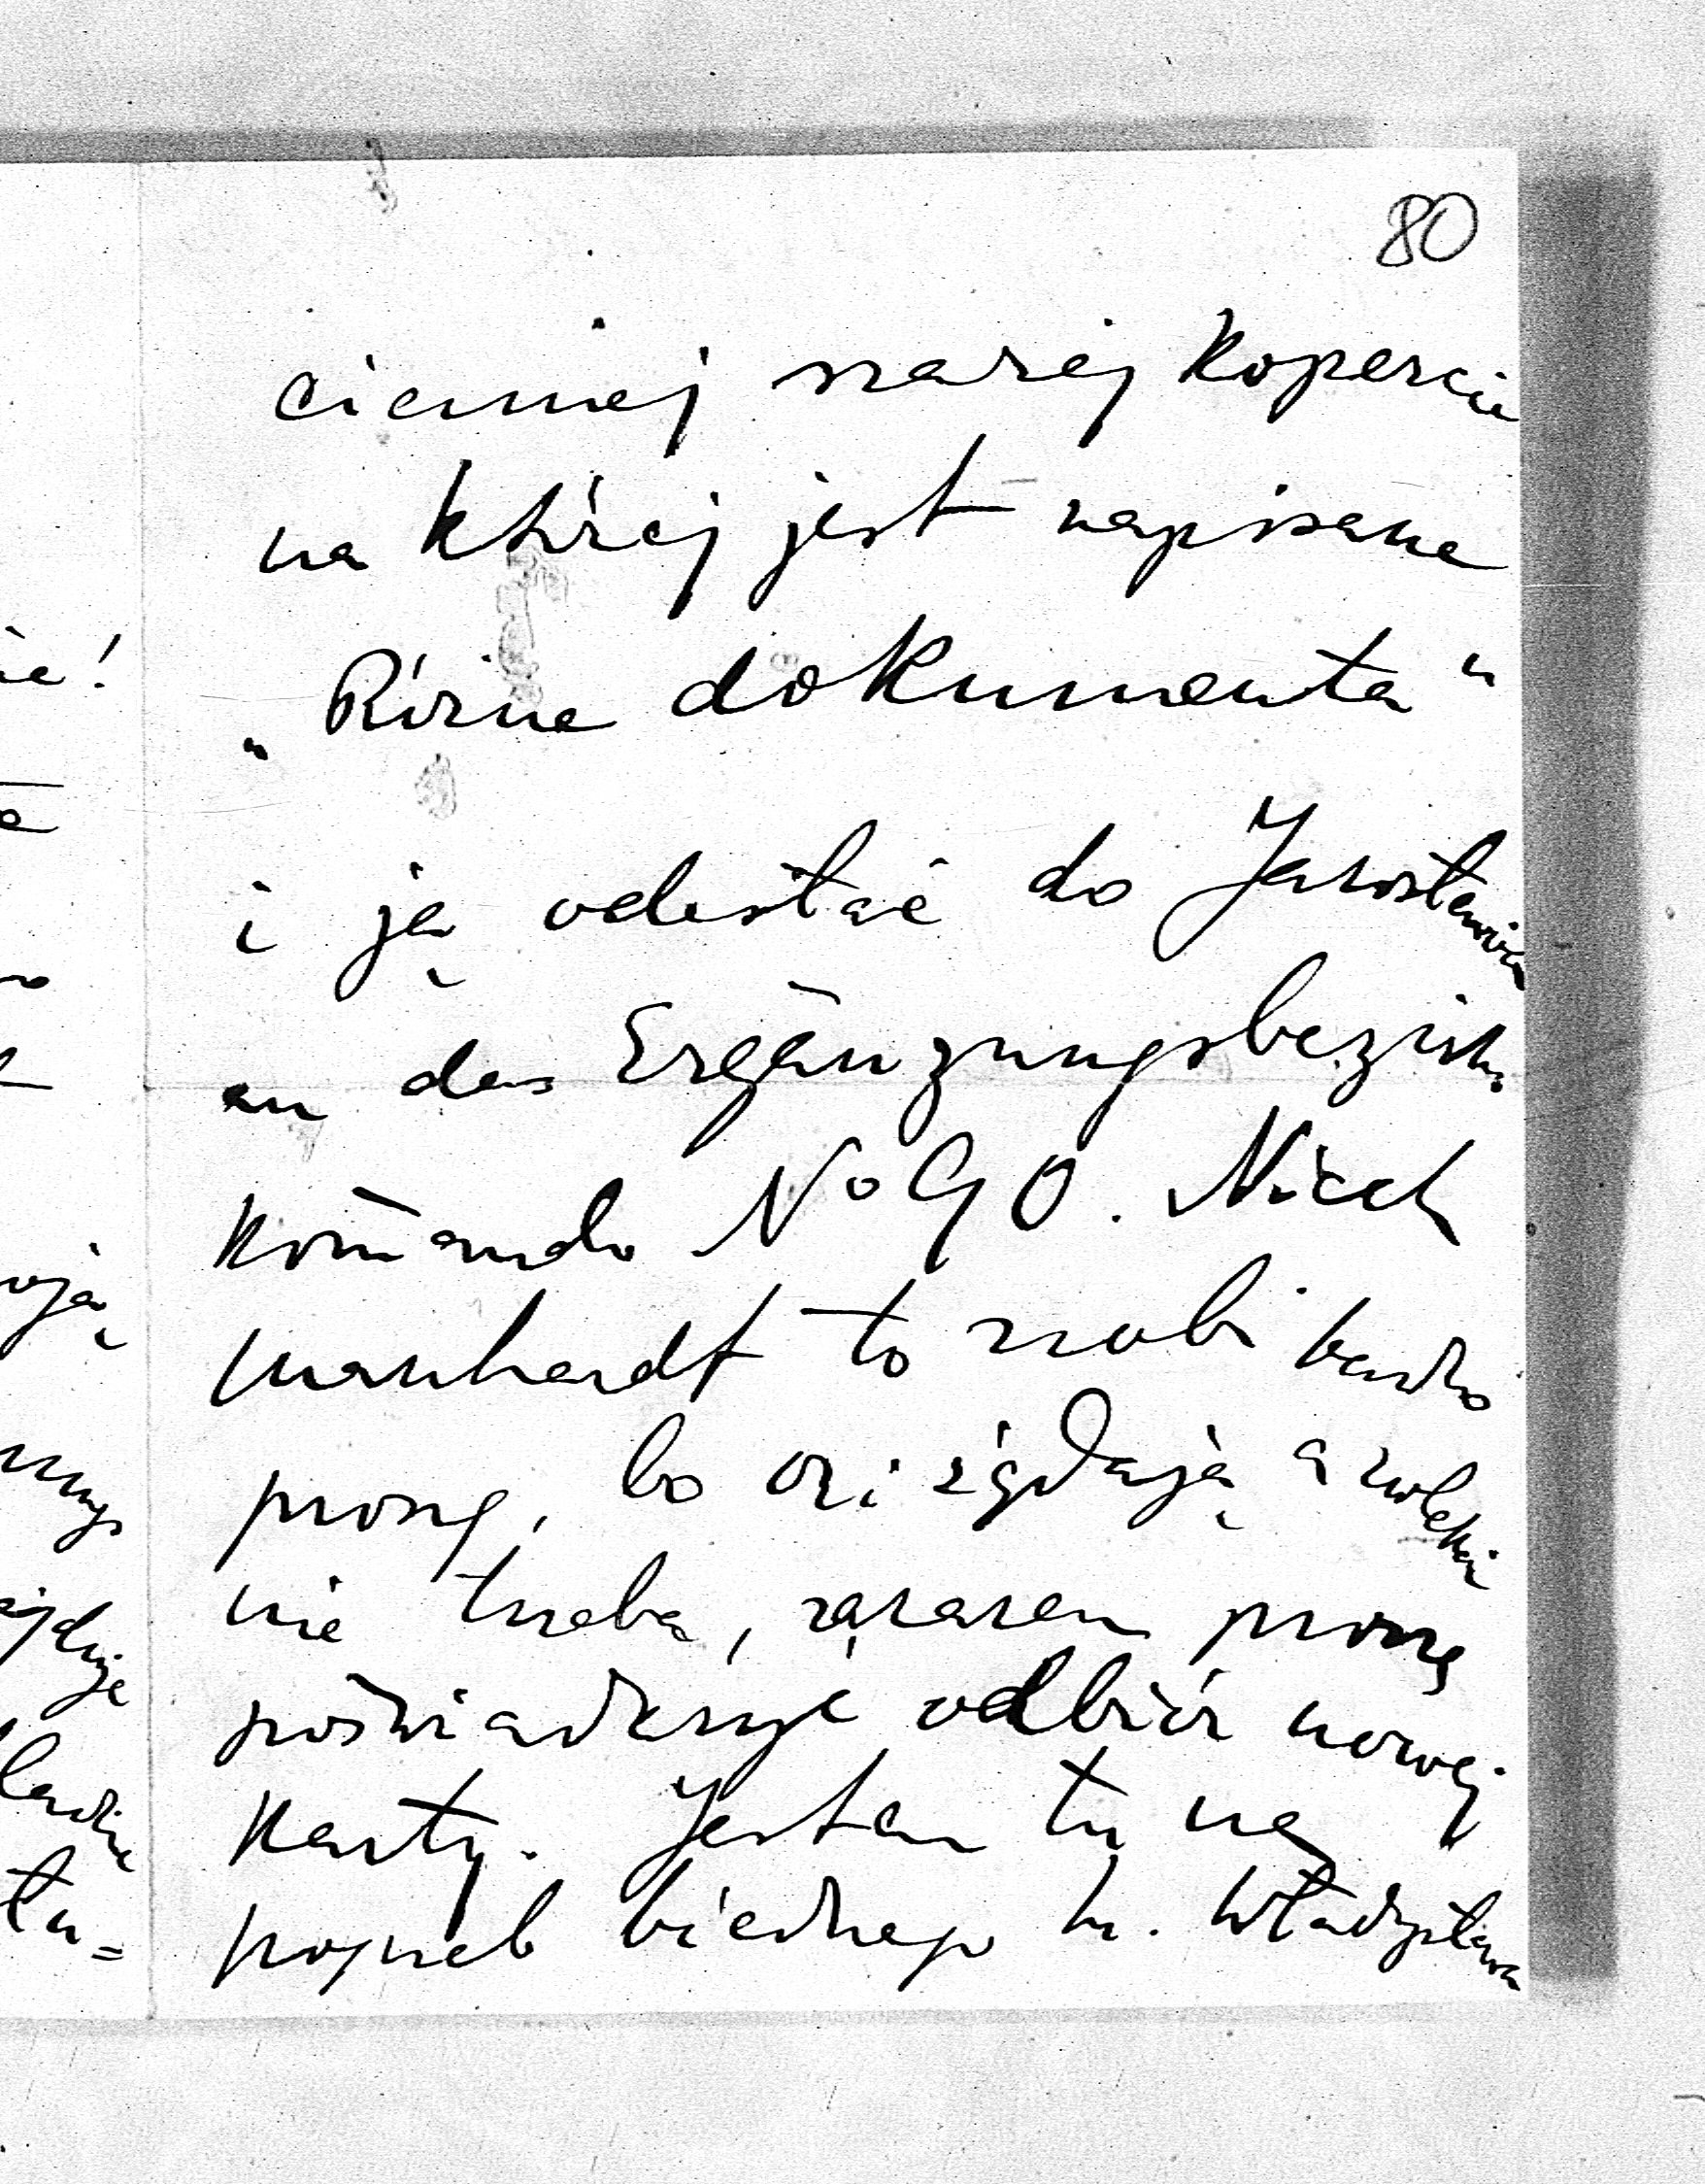 80
ciemnej szarej kopercie
na której jest napisane
„Różne dokumenta"
i ją odesłać do Jarosławia
an das Ergänzungsbezirks
Kom̄ando No 90. Niech
Manhardt to zrobi bardzo
proszę, bo oni żądają a zwlekać
nie trzeba, zarazem proszę
poświadczyć odbiór nowej
Karty. Jestem tu na
pogrzeb biednego hr. Władysława
ie!
oją
tu=